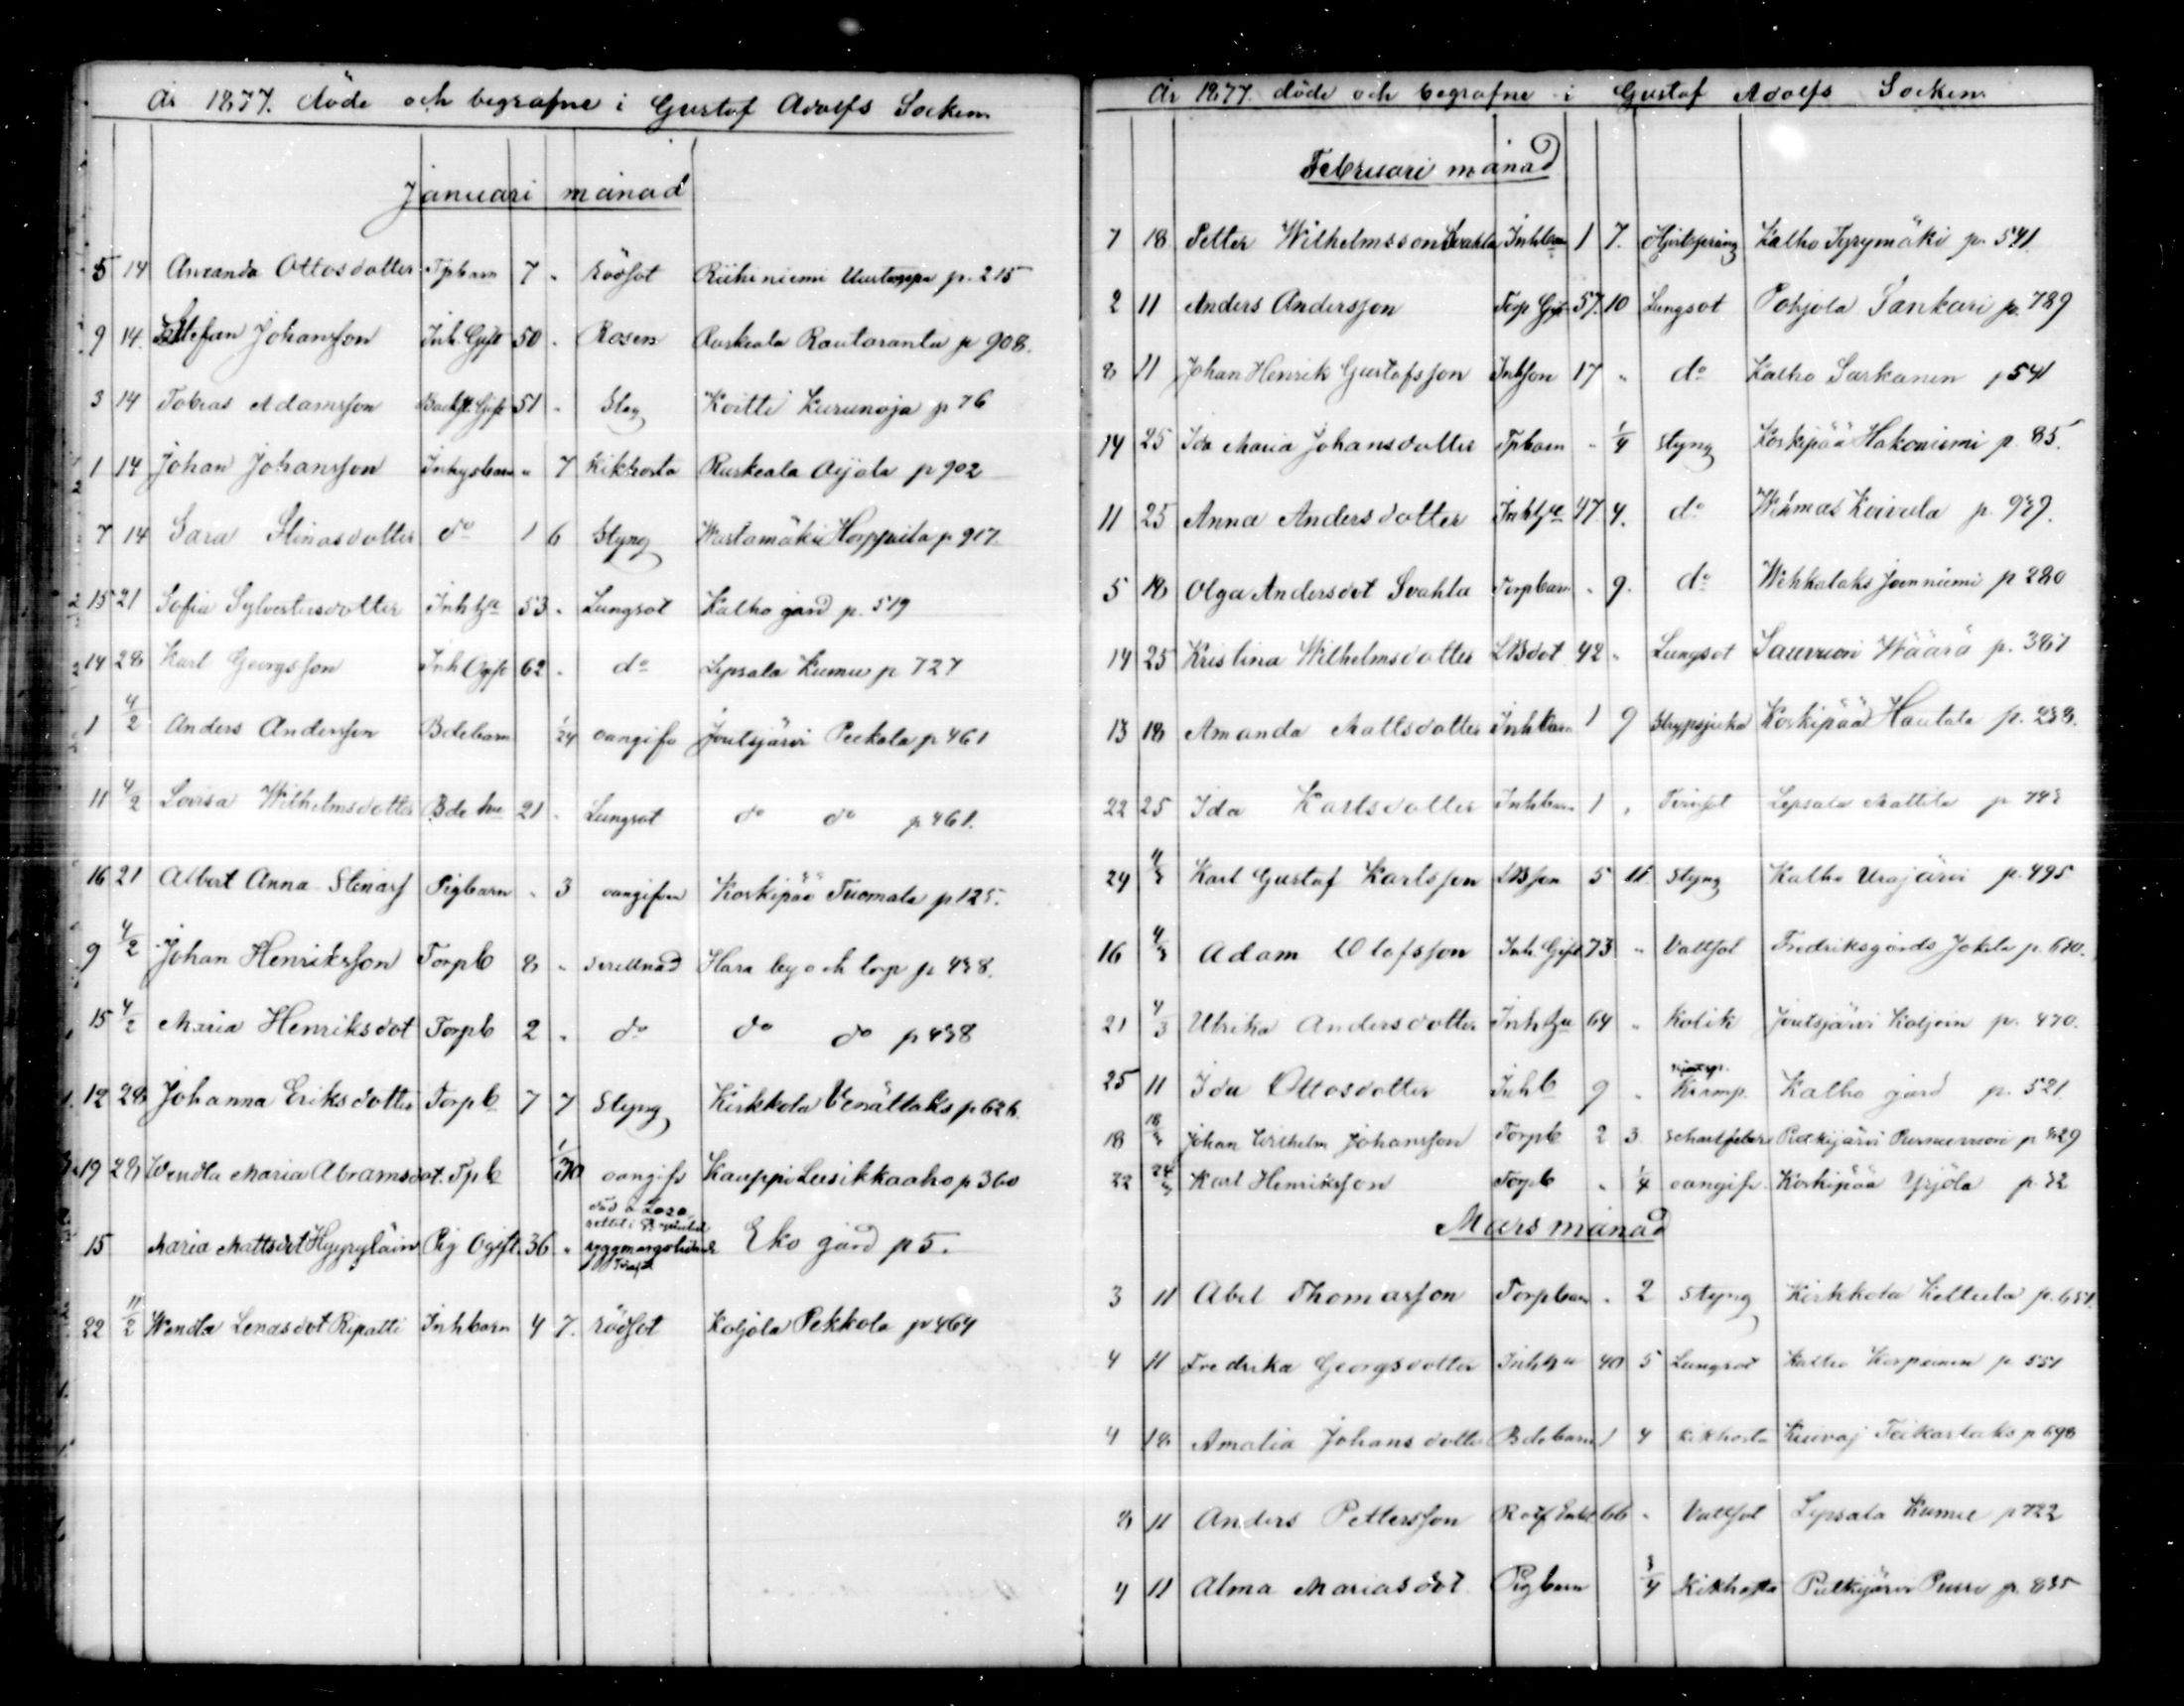 År 1877. döde och begrafne i Gustof Adolfs Socken.
Januari månad
5 14 Amanda Ottosdotter Tpbarn 7 " Rödsot Riihiniemi p. 215
9 14. Stefan Johansson Inh. Gift 50 " Rosen Ruskeala Rautaranta p 908.
3 14 Tobias Adamsson Backst. Gift 51 " Slag Koitti Kurunoja p 76
1 14 Johan Johansson Inhysbarn " 7 Kikhosta Ruskeala Äijälä p 902
7 14 Sara Stinasdotter do 1 6 Styng Wastamäki Horppila p 917.
15 21 Sofia Sylvestersdotter Inh hu 53 " Lungsot Kalho gård p. 519
14 28 Karl Georgsson Inh Ogift 62 " do Lepsala Kumu p 727
1 4/2 Anders Andersson Bdebarn 1/24 oangifv Joutsjärvi Peekala p 461
11 4/2 Lovisa Wilhelmsdotter Bde hu 21 " Lungsot do do p 461.
16 21 Albert Anna Stinas Pigbarn " 3 oangifven Korkipää Tuomala p 125.
9 4/2 Johan Henriksson Torpb 8 " Hara by och torp p 438.
15 4/2 Maria Henriksdot Torpb 2 " do do do p 438
12 28 Johanna Eriksdotter Torpb 7 7 Styng Kirkkola p 626.
19 28 Wendla Maria Abramsdot. Tpb 1/30 oangifv Kauppi Lusikkaaho p 360
15 Maria Mattsdot Hyyryläin Pig Ogift 36 " Eko gård p 5.
22 11/2 Wendla Lenasdot Ripatti Inhbarn 4 7. Rödsot Koljola Pekkola p 464
År 1877. döde och begrafne i Gustof Adolfs Socken
Februari månad
7 18 Petter Wilhelmsson Svahla Inhbarn 1 7. Kalho Tyrymäki p. 541
2 11 Anders Andersson Torp Gift 57. 10 Lungsot Pohjola Tankari p. 789
8 11 Johan Henrik Gustafsson Inhson 17 " do Kalho Sarkanen p 541
14 25 Ida Maria Johansdotter Tpbarn " 1/4 Styng Korkipää Hakoniemi p. 85.
11 25 Anna Andersdotter Inh hu 47 4. do Wehmas Koivula p. 939.
5 18 Olga Andersdot Svahla Torpbarn " 9. do Wehkalaks Joenniemi p 280
14 25 Kristina Wilhelmsdotter LBdot 42 " Lungsot Saurvuori Wäärä p. 381
13 18 Amanda Mattsdotter Inhbarn 1 9 Strypsjuka Korkipää Hautala p. 238.
22 25 Ida Karlsdotter Inhbarn 1 " Lepsala Mattila p 743
24 4/3 Karl Gustaf Karlsson LBson 5 11. Styng Kalho Urajärvi p. 495
16 4/3 Adam Olofsson Inh. Gift 73 " Vattsot Fredriksgårds Jokela p. 610.
21 4/3 Ulrika Andersdotter Inh hu 64 " Kolik Joutsjärvi Koljoin p. 470.
25 11 Ida Ottosdotter Inhb 9 " Kramp. Kalho gård p. 521
18 18/3 Johan Wilhelm Johansson Torpb 2 3 Pulkijärvi p 829
22 24/3 Karl Henriksson Torpb " 1/4 oangifv Korkipää Yrjölä p. 32
Mars månad
3 11 Abel Thomasson Torpbarn " 2 Styng Kirkkola Kettula p. 651.
4 11 Fredrika Georgsdotter Inh hu 40 5 Lungsot Kalho p 551
4 18 Amalia Johansdotter Bdebarn 1 4 Kikhosta Kuivaj Teikarlaks p 698
8 11 Anders Pettersson 66 " Vattsot Lepsala Kumu p 722
4 11 Alma Mariasdot Pigbarn 3/4 Kikhosta Pulkijärvi p. 835